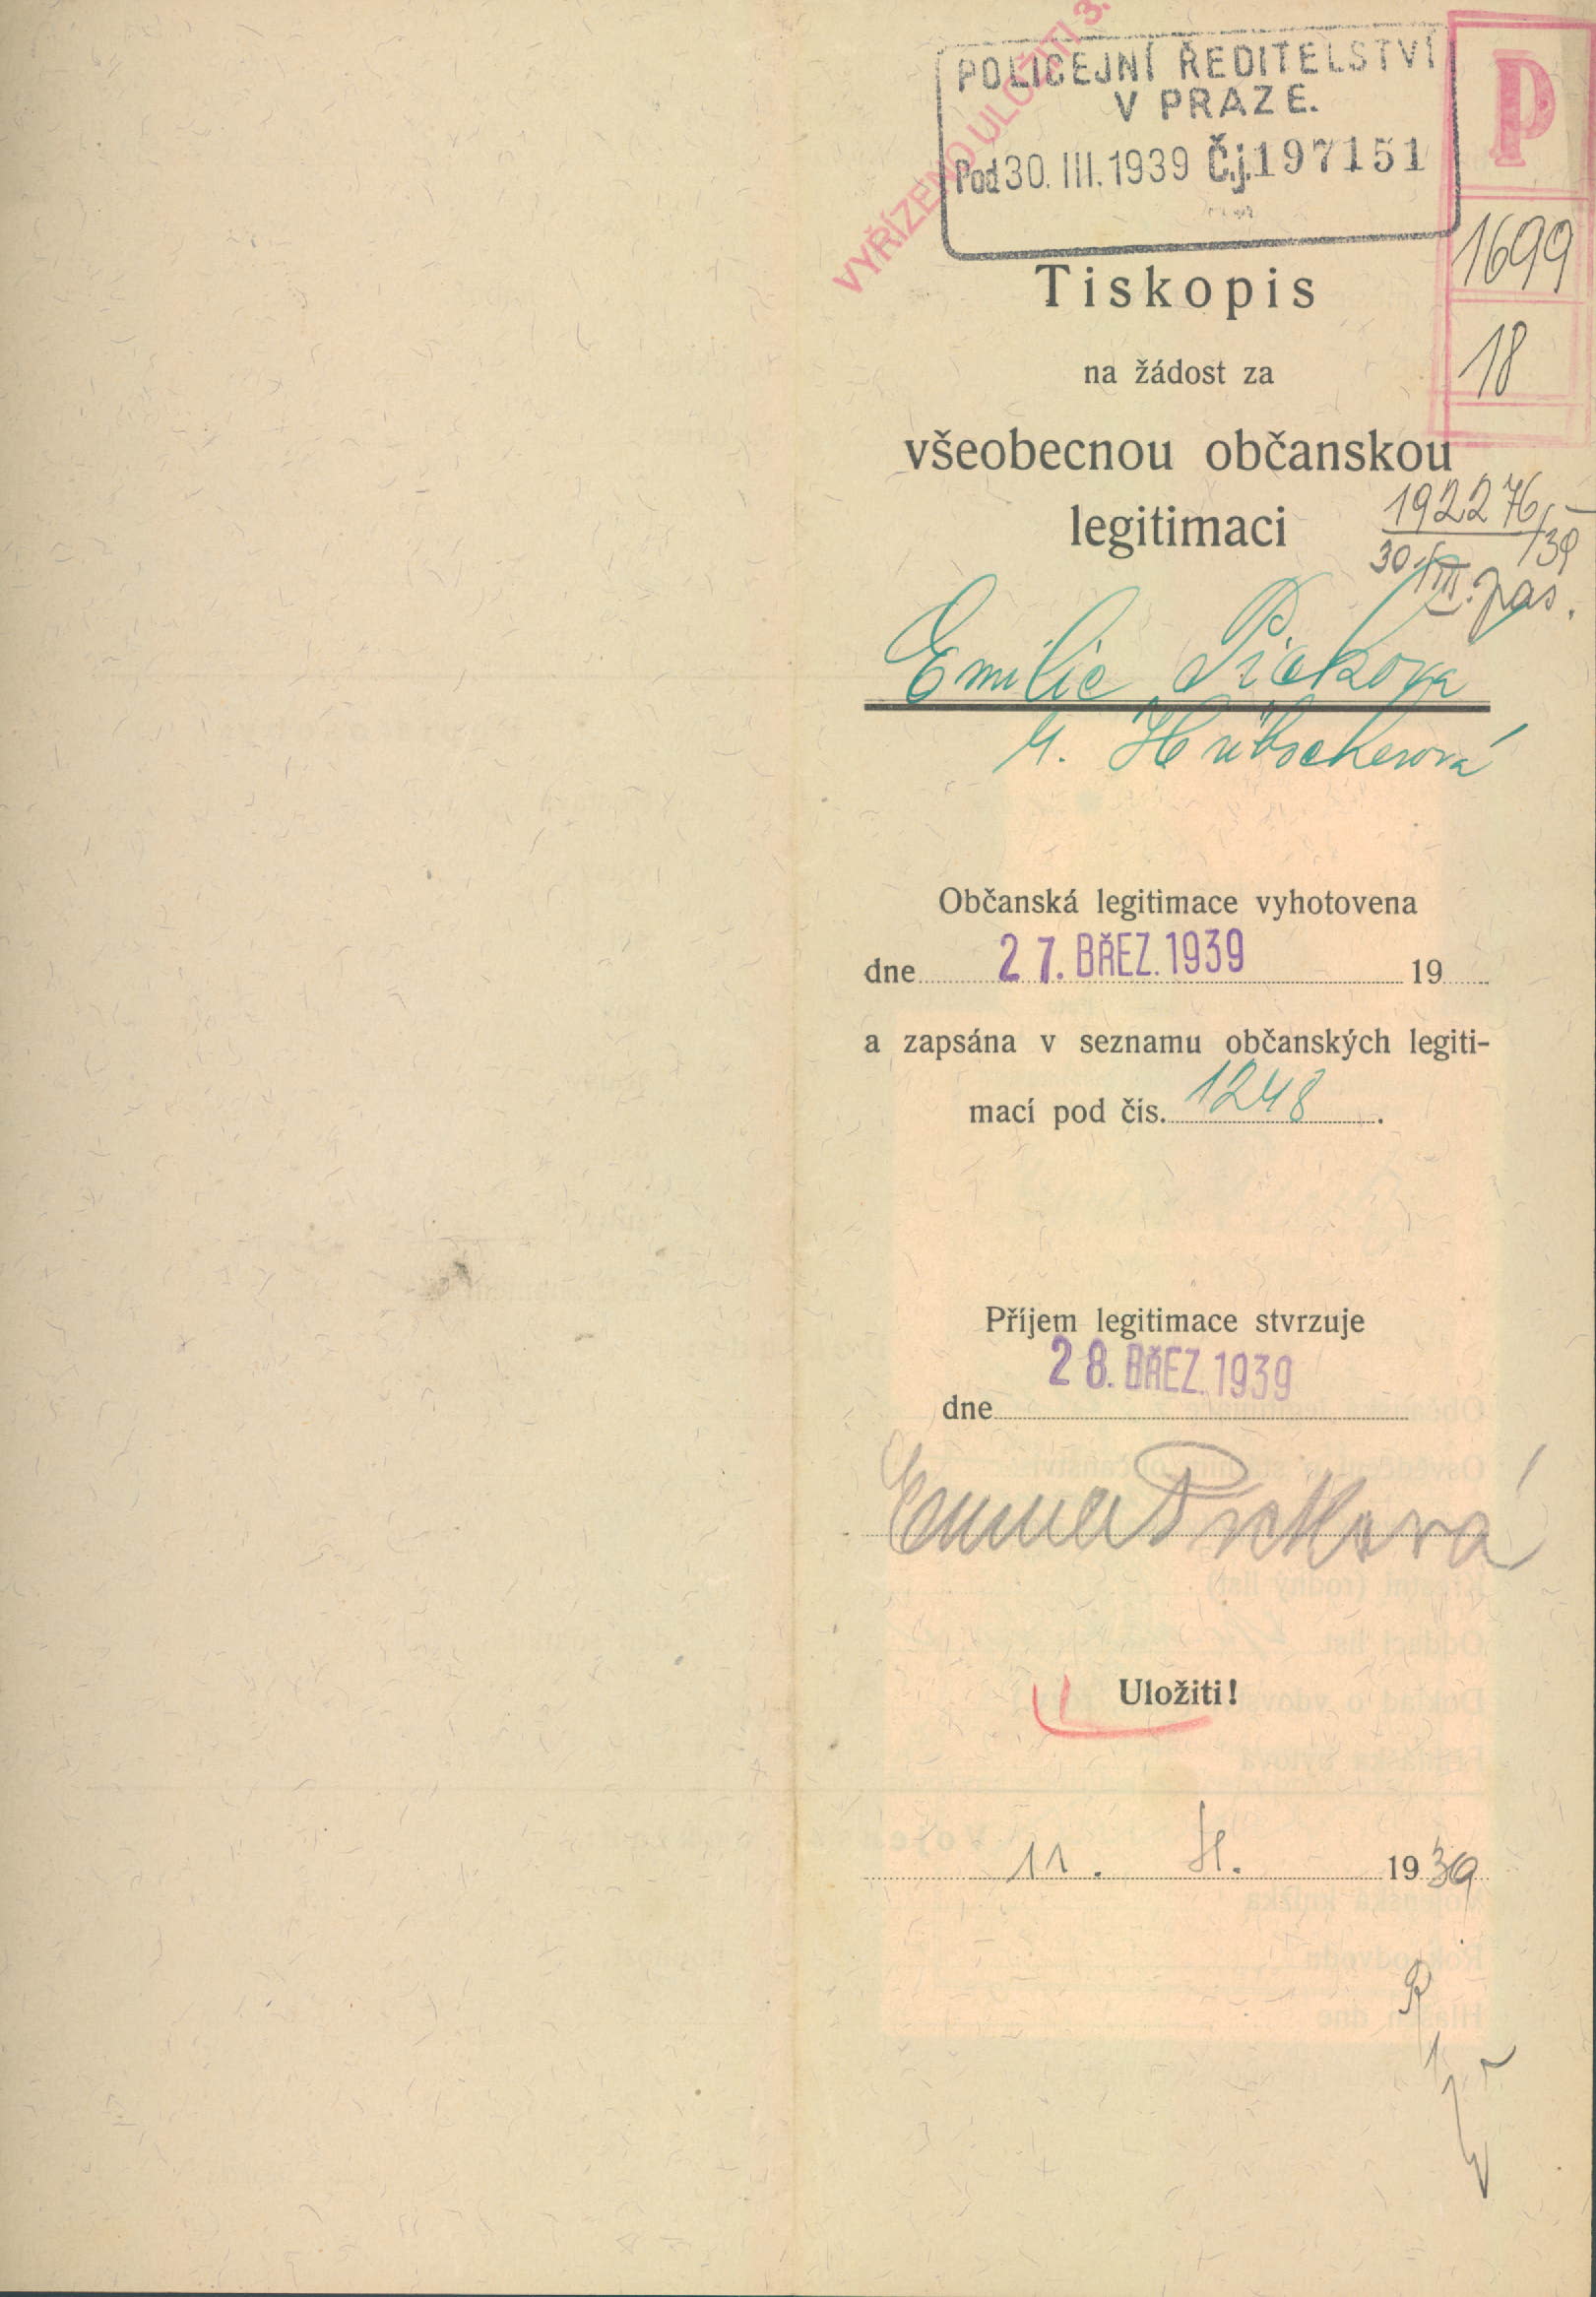 VYŘÍZENO ULOŽITI 3.
POLICEJNÍ ŘEDITELSTVÍ
V PRAZE.
Pod 30. III. 1939 Č.j. 197151
P
1699
18
Tiskopis
na žádost za
všeobecnou občanskou
legitimaci
192276/39
30./III. pas.
Emilie Picková
r. Hübscherová
Občanská legitimace vyhotovena
dne 27. BŘEZ. 1939 19
a zapsána v seznamu občanských legiti-
mací pod čís. 1248.
Příjem legitimace stvrzuje
28. BŘEZ. 1939
dne
Emilie Picková
Uložiti!
11. 1939